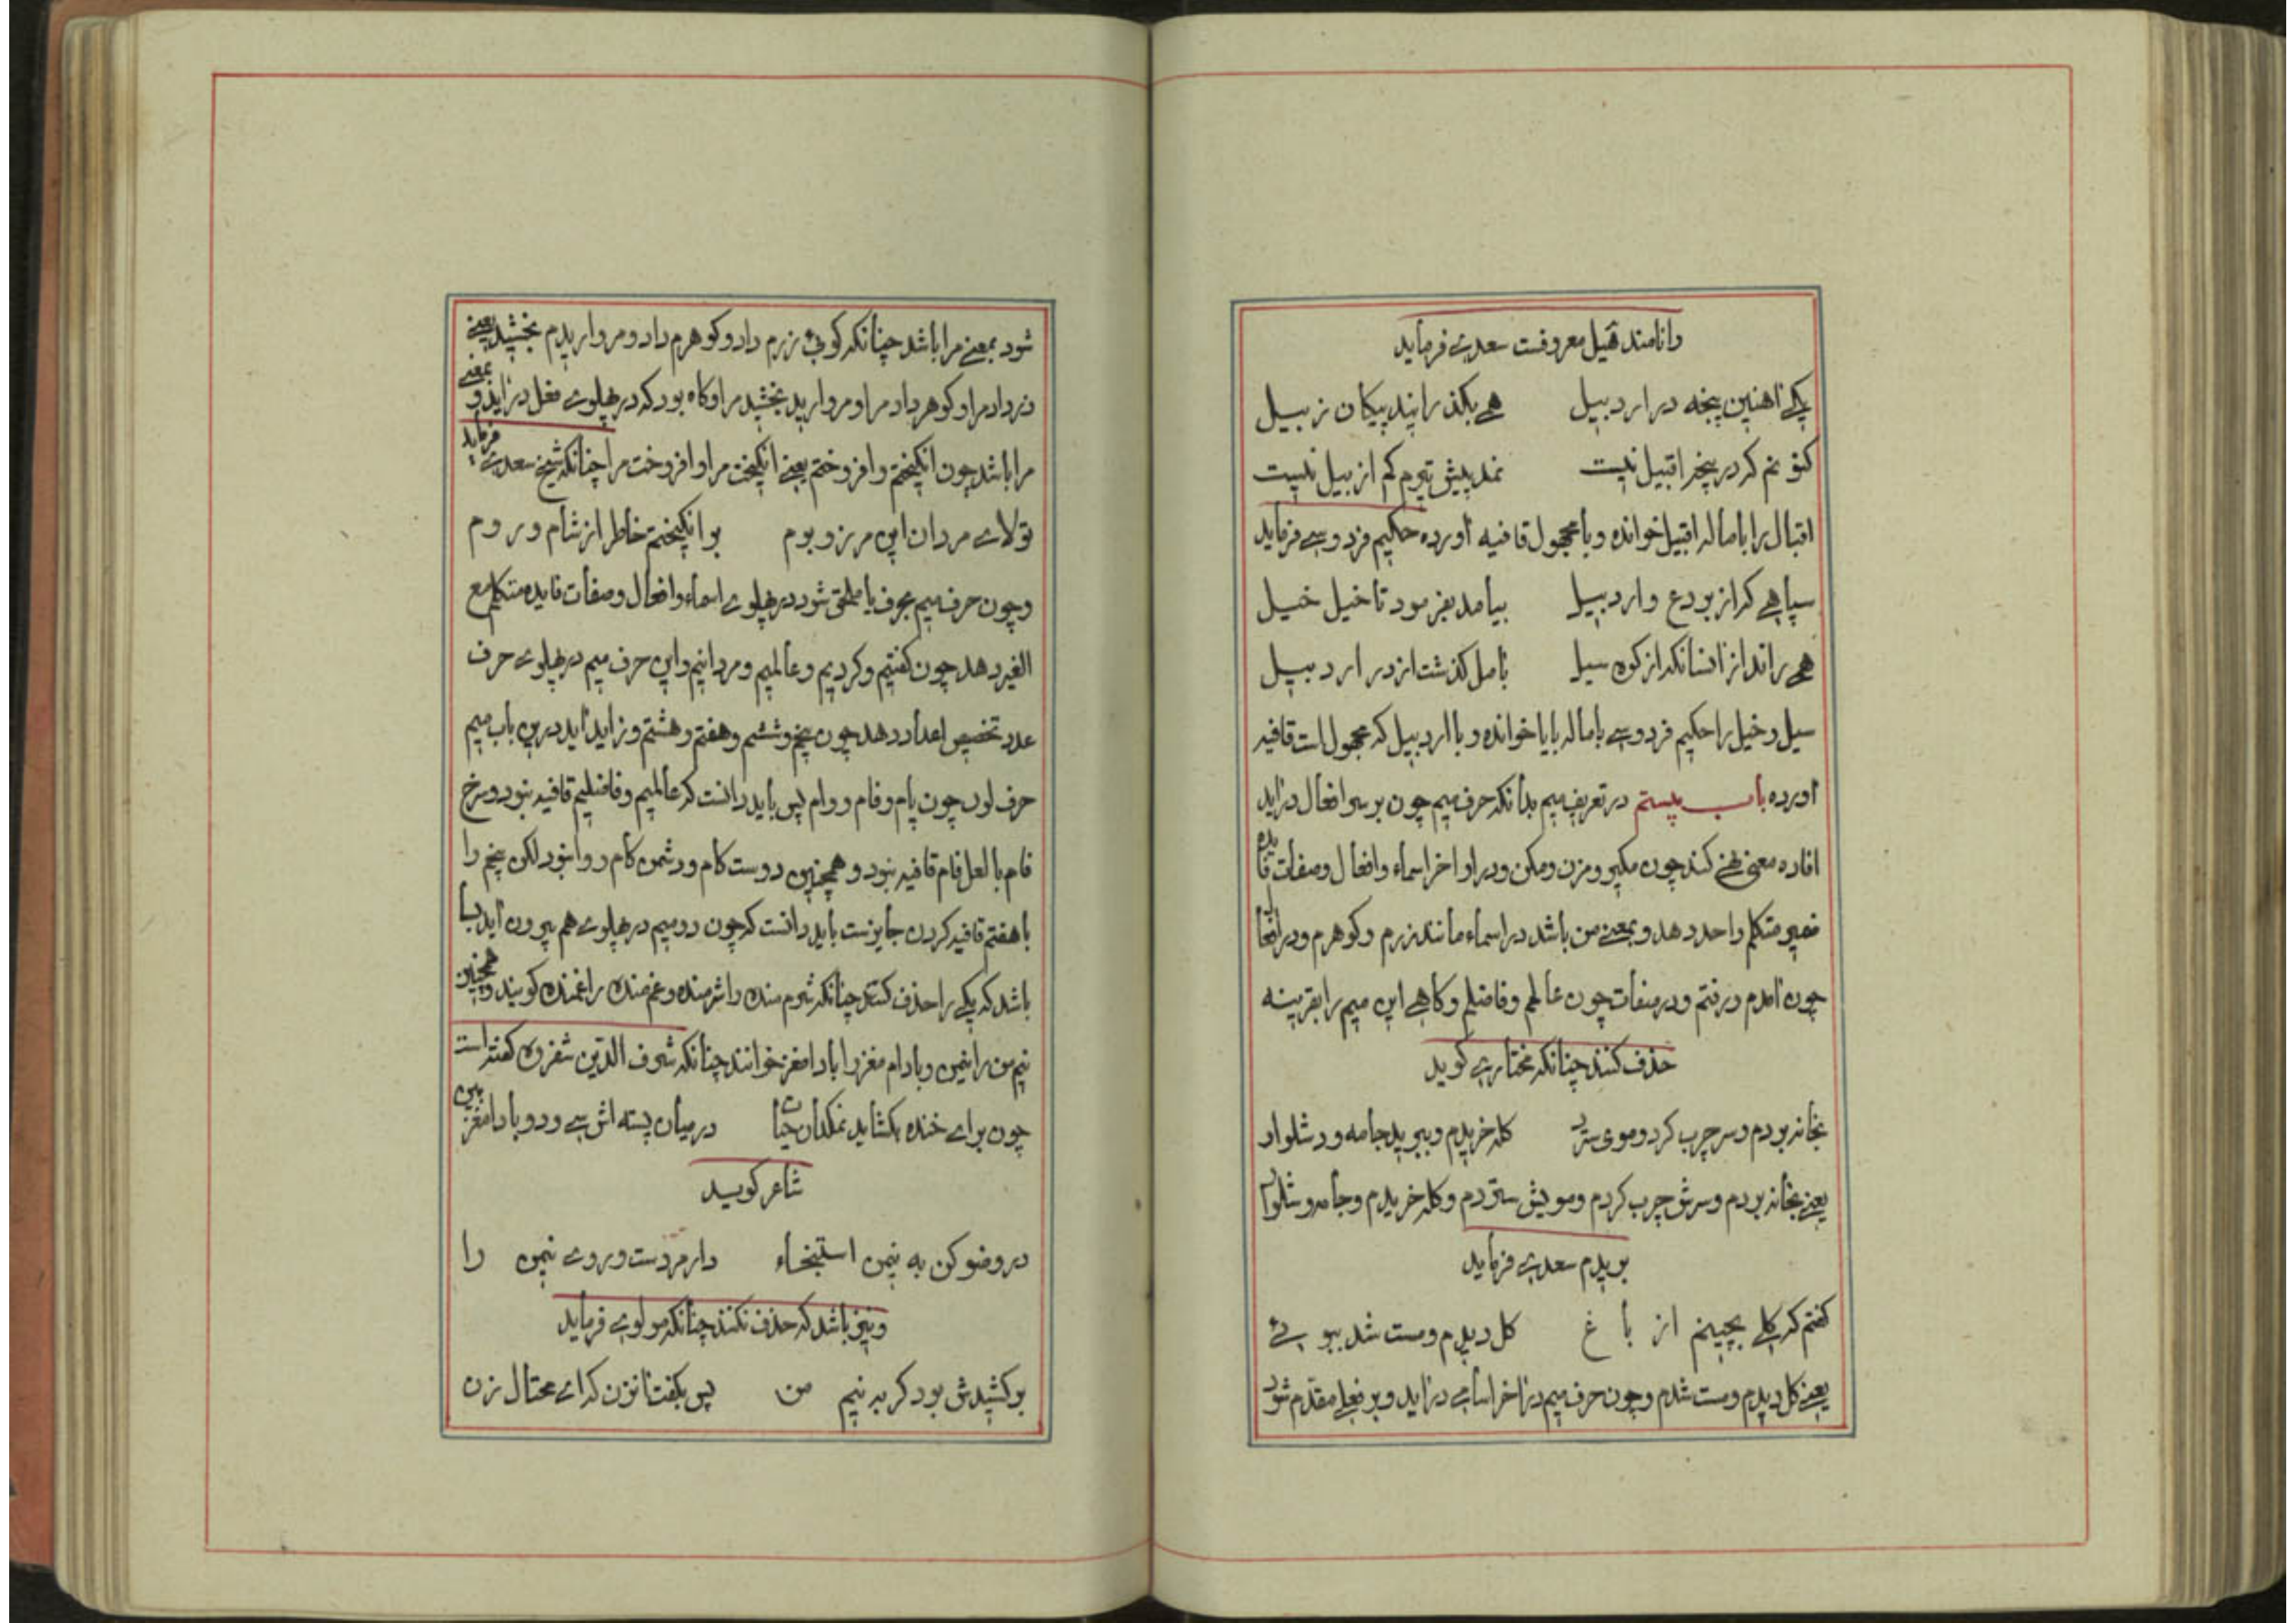 دانامند هیل معروفست سعدی فرماید
یکی آهنین پنجه در اردبیل همی بگذرانید پیکان ز بیل
نمد پیش تیرم کم از بیل نیست
اقبال را باماله اقبیل خوانده و با مجهول قافیه آورده حکیم فردوسی فرماید
سپاهی که از بردع و اردبیل بیامد بفرمود تا خیل خیل
همی راند از انسانکه از کوه سیل بآمل گذشت از در اردبیل
سیل و خیل را حکیم فردوسی باماله بایا خوانده و با اردبیل که مجهول است قافیه
آورده باب بیستم در تعریف میم بدانکه حرف میم چون بر سر افعال درآید
افاده معنی نهی کند چون مگیر و مزن و مکن و در اواخر اسماء و افعال و صفات فایده
ضمیر متکلم واحد دهد و بمعنی من باشد در اسماء مانند زرم و گوهرم و در افعال
چون آمدم و رفتم و در صفات چون عالمم و فاضلم و گاهی این میم را بقرینه
حذف کنند چنانکه مختاری گوید
بخانه بردم و سر چرب کرد و موی سترد کله خریدم و ببرید جامه و شلوار
یعنی بخانه بردم و سرش چرب کردم و مویش ستردم و کله خریدم و جامه و شلوار
بریدم سعدی فرماید
گفتم که گلی بچینم از باغ گل دیدم و مست شد ببوئی
یعنی گل دیدم و مست شدم و چون حرف میم در آخر اسامی درآید و بر فعلی مقدم شود
شود بمعنی مرا باشد چنانکه گوئی زرم داد و گوهرم داد و مرواریدم بخشید یعنی
زر داد مرا و گوهر داد مرا و مروارید بخشید مرا و گاه بود که در پهلوی فعل درآید و بمعنی
مرا باشد چون انگیختم و افروختم یعنی انگیخت مرا و افروخت مرا چنانکه شیخ سعدی فرماید
تولای مردان این مرز و بوم برانگیختم خاطر از شام و روم
و چون حرف میم بحرف یا ملحق شود در پهلوی اسماء و افعال و صفات فایده متکلم مع
الغیر دهد چون گفتیم و کردیم و عالمیم و مردانیم و این حرف میم در پهلوی حرف
عدد تخصیص اعداد دهد چون پنجم و ششم و هفتم و هشتم و زاید آید درین باب میم
حرف لون چون پام و فام و وام پس باید دانست که عالمیم و فاضلیم قافیه نبود و سرخ
فام با لعل فام قافیه نبود و همچنین دوست کام و دشمن کام روا نبود لکن پنجم را
با هفتم قافیه کردن جایزست باید دانست که چون دو میم در پهلوی هم بیرون آید بسا
باشد که یکی را حذف کنند چنانکه شرم منده را شرمنده و غم منده را غمنده گویند و همچنین
نیم من را نیمن و بادام مغز را بادامغز خوانند چنانکه شرف الدین شفروه گفته است
چون برای خنده بگشاید نمکدان حیات در میان پسته اش سی و دو بادامغز بین
شاعر گوید
در وضو کن به نیمن استنجاء دار مر دست و روی نیمن را
و نیز باشد که حذف نکنند چنانکه مولوی فرماید
برکشیدش بود گربه نیم من پس بگفت آنزن که ای محتال زن